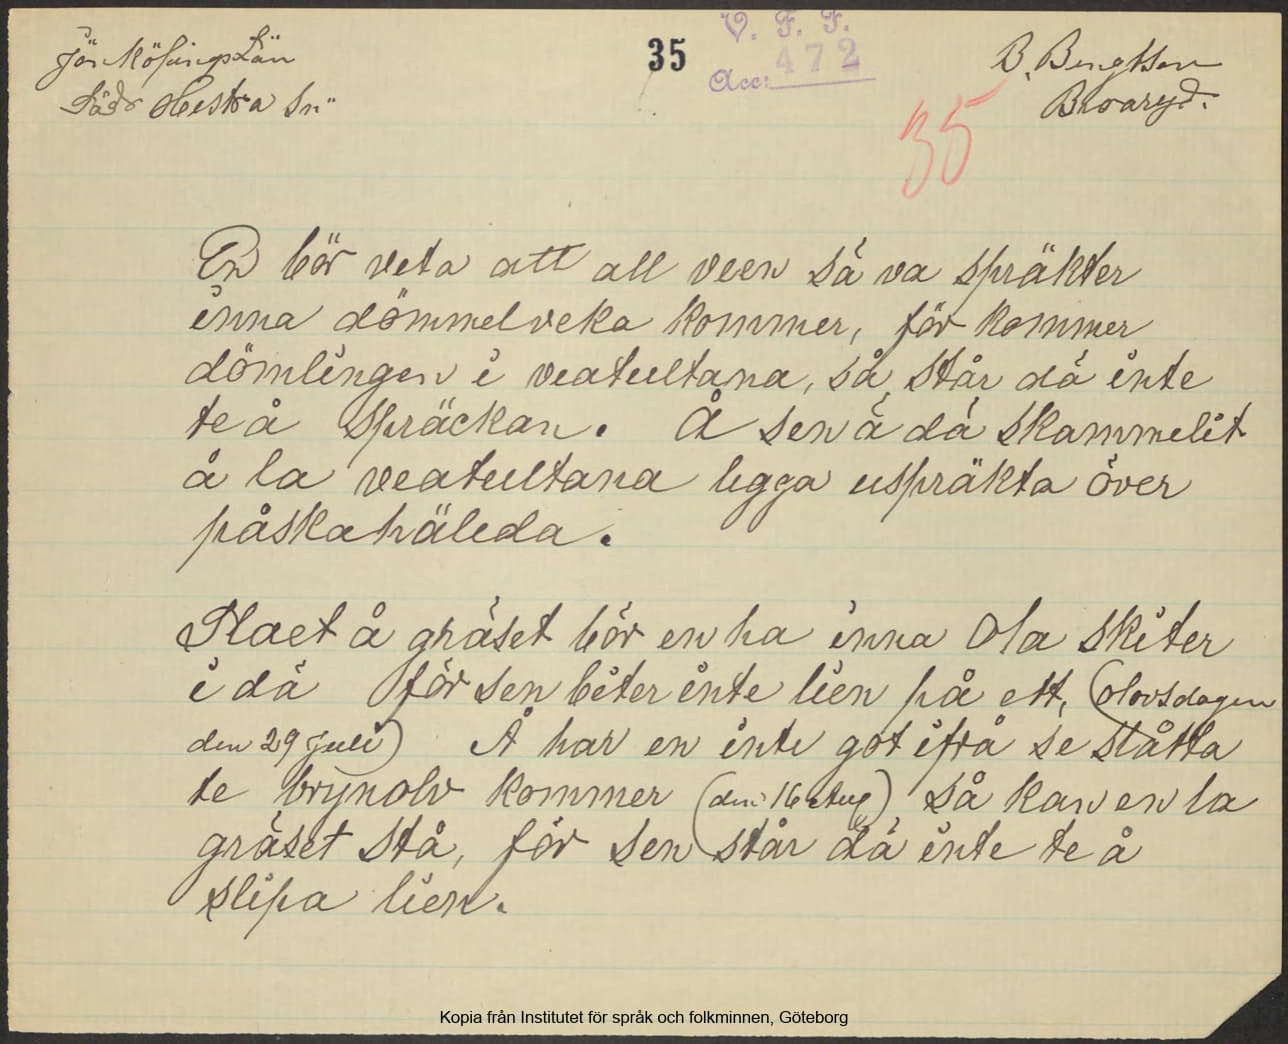 Jönköpings Län
Södr Hestra Sn
35
V. F. F.
Acc: 472
B. Bengtsson
Broaryd.
35
En bör veta att all veen så va spräkter
inna dömmelveka kommer, för kommer
dömlingen i veatultana, så står dä inte
te å spräckan. Å sen ä dä skammelit
å la veatultana ligga uspräkta över
påskahäleda.
Slaet å gräset bör en ha inna Ola skiter
i dä för sen biter inte lien på ett, (olovsdagen
den 29 juli) Å har en inte got ifrå se slåtta
te brynolv kommer (den 16 Aug) så kan en la
gräset stå, för sen står dä inte te å
slipa lien.
Kopia från Institutet för språk och folkminnen, Göteborg